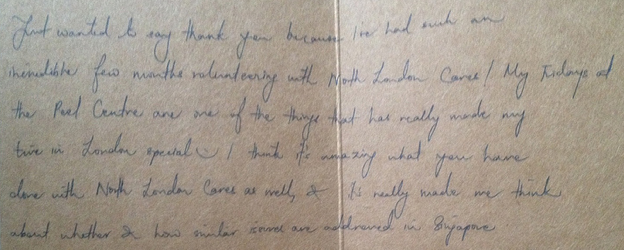 Just wanted to say thank you because I've had such an
incredible few months volunteering with North London Cares! My Fridays at
the Peel Centre are one of the things that has really made my
time in London special :) I think it's amazing what you have
done with North London Cares as well, & it's really made me think
about whether & how similar issues are addressed in Singapore